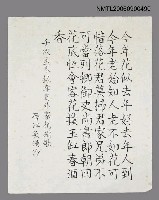 NMTL20060900490
今年花似去年好去年人到
今年老始知人老不如花可
惜落花君莫掃君家兄弟不
可當列卿御史尚書郎朝回
花底恒會客花撲玉缸春酒
香